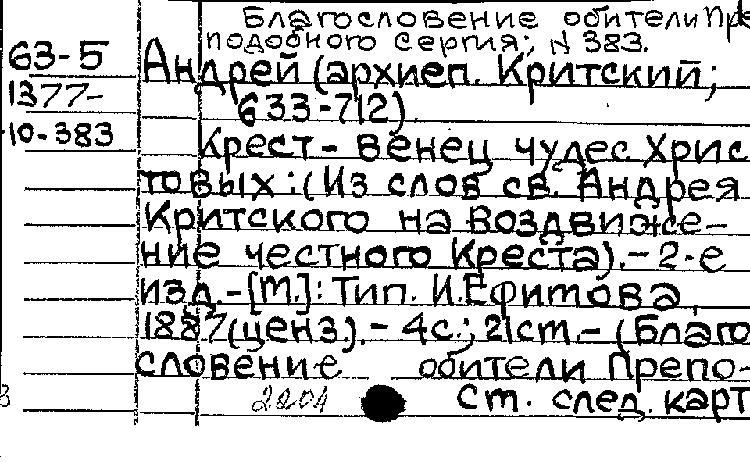 Благословение обители Пре
подобного Сергия; N 383.
63-5
Андрей (архиеп. Критский;
1377-
633-712)
10-383
Крест - венец чудес Хрис
товых : (Из слов св. Андрея
Критского на Воздвиже-
ние честного Креста). - 2-е
изд. - [М.] : Тип. И.Ефимова,
1887 (ценз.). - 4с.; 21см. - (Благо
словение обители Препо-
2201
Ст. след. карт